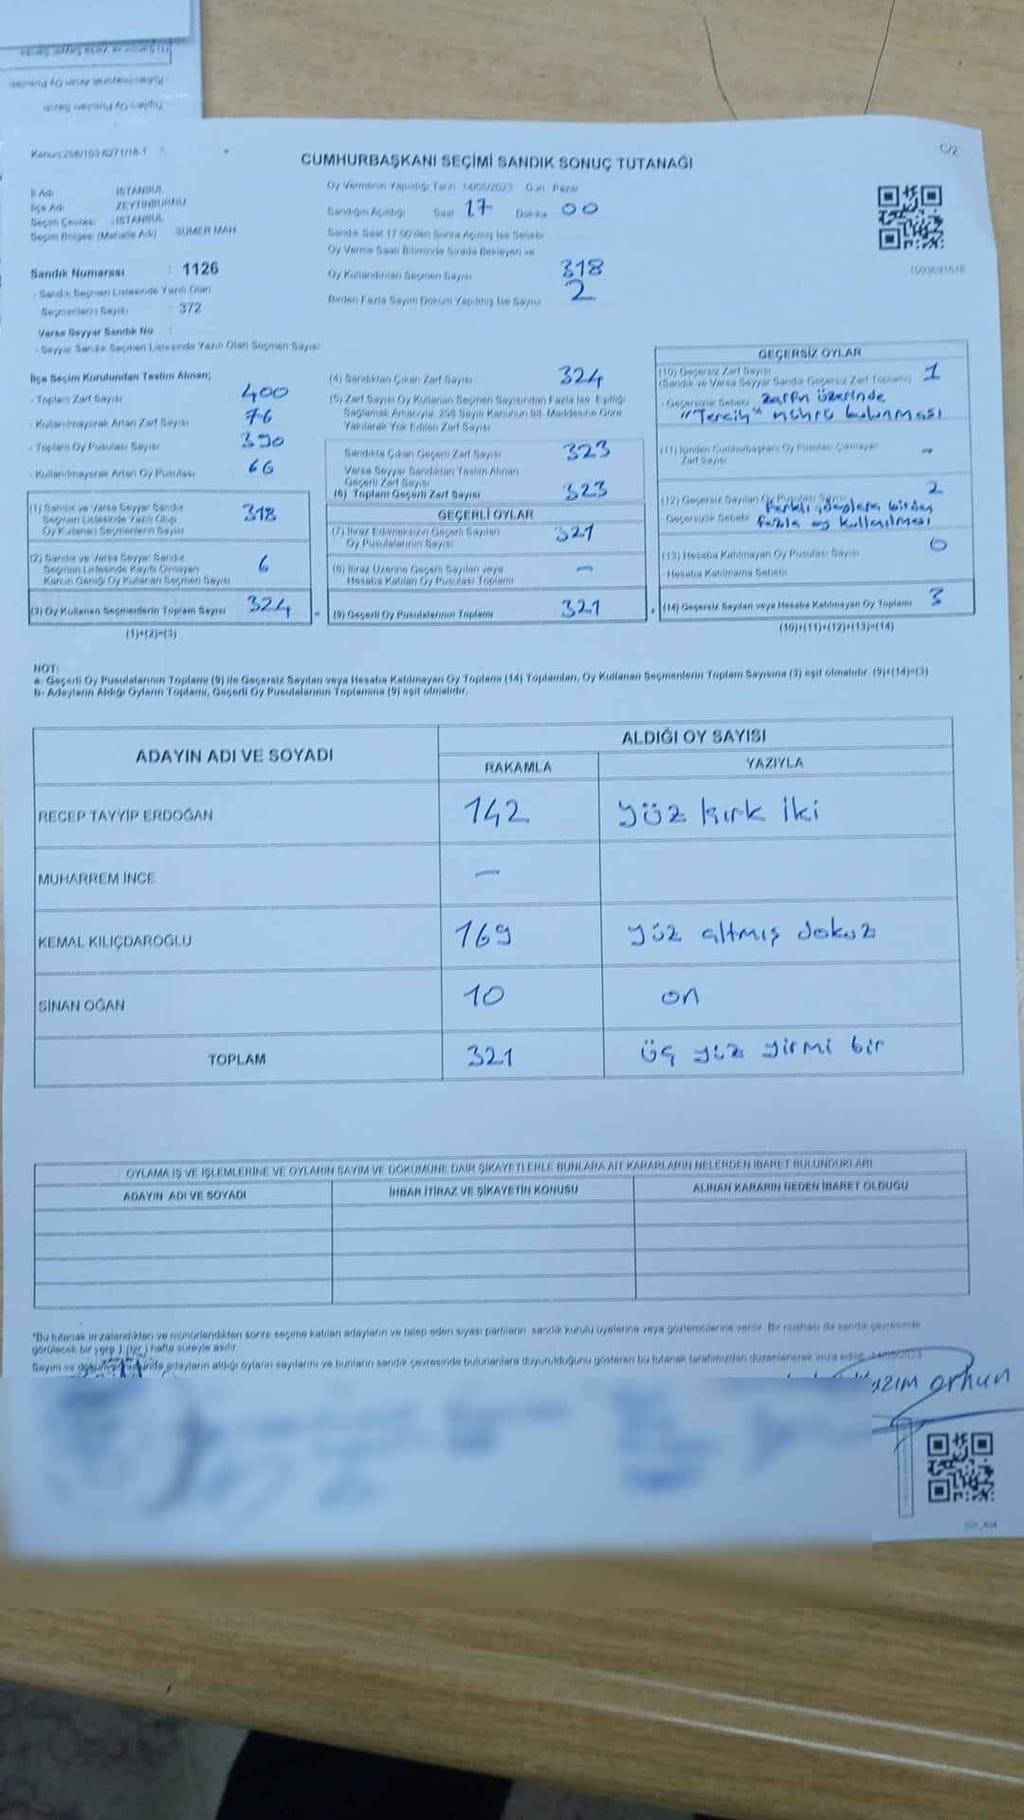 Kanun:298/105 6271/18-1
C/2
CUMHURBAŞKANI SEÇİMİ SANDIK SONUÇ TUTANAĞI
İl Adı : İSTANBUL
İlçe Adı : ZEYTİNBURNU
Seçim Çevresi : İSTANBUL
Seçim Bölgesi (Mahalle Adı) SÜMER MAH.
Sandık Numarası : 1126
- Sandık Seçmen Listesinde Yazılı Olan
Seçmenlerin Sayısı : 372
Varsa Seyyar Sandık No :
- Seyyar Sandık Seçmen Listesinde Yazılı Olan Seçmen Sayısı
Oy Vermenin Yapıldığı Tarih 14/05/2023 Gün Pazar
Sandığın Açıldığı Saat 17 Dakika 00
Sandık Saat 17.00'den Sonra Açılmış İse Sebebi
Oy Verme Saati Bitiminde Sırada Bekleyen ve
Oy Kullandırılan Seçmen Sayısı 318
Birden Fazla Sayım Döküm Yapılmış İse Sayısı 2
1003691618
İlçe Seçim Kurulundan Teslim Alınan;
- Toplam Zarf Sayısı 400
- Kullanılmayarak Artan Zarf Sayısı 76
- Toplam Oy Pusulası Sayısı 390
- Kullanılmayarak Artan Oy Pusulası 66
(1) Sandık ve Varsa Seyyar Sandık
Seçmen Listesinde Yazılı Olup
Oy Kullanan Seçmenlerin Sayısı 318
(2) Sandık ve Varsa Seyyar Sandık
Seçmen Listesinde Kayıtlı Olmayan
Kanun Gereği Oy Kullanan Seçmen Sayısı 6
(3) Oy Kullanan Seçmenlerin Toplam Sayısı 324
(1)+(2)=(3)
(4) Sandıktan Çıkan Zarf Sayısı 324
(5) Zarf Sayısı Oy Kullanan Seçmen Sayısından Fazla İse Eşitliği
Sağlamak Amacıyla 298 Sayılı Kanunun 98. Maddesine Göre
Yakılarak Yok Edilen Zarf Sayısı
Sandıkta Çıkan Geçerli Zarf Sayısı 323
Varsa Seyyar Sandıktan Teslim Alınan
Geçerli Zarf Sayısı
(6) Toplam Geçerli Zarf Sayısı 323
GEÇERLİ OYLAR
(7) İtiraz Edilmeksizin Geçerli Sayılan
Oy Pusulalarının Sayısı 321
(8) İtiraz Üzerine Geçerli Sayılan veya
Hesaba Katılan Oy Pusulası Toplamı -
= (9) Geçerli Oy Pusulalarının Toplamı 321
GEÇERSİZ OYLAR
(10) Geçersiz Zarf Sayısı 1
(Sandık ve Varsa Seyyar Sandık Geçersiz Zarf Toplamı)
- Geçersizlik Sebebi zarfın üzerinde
"Tercih" mührü bulunması
(11) İçinden Cumhurbaşkanı Oy Pusulası Çıkmayan
Zarf Sayısı -
(12) Geçersiz Sayılan Oy Pusulası Sayısı 2
- Geçersizlik Sebebi Farklı adaylara birden
fazla oy kullanılması
(13) Hesaba Katılmayan Oy Pusulası Sayısı 0
- Hesaba Katılmama Sebebi
+ (14) Geçersiz Sayılan veya Hesaba Katılmayan Oy Toplamı 3
(10)+(11)+(12)+(13)=(14)
NOT:
a- Geçerli Oy Pusulalarının Toplamı (9) ile Geçersiz Sayılan veya Hesaba Katılmayan Oy Toplamı (14) Toplamları, Oy Kullanan Seçmenlerin Toplam Sayısına (3) eşit olmalıdır. (9)+(14)=(3)
b- Adayların Aldığı Oyların Toplamı, Geçerli Oy Pusulalarının Toplamına (9) eşit olmalıdır.
ADAYIN ADI VE SOYADI ALDIĞI OY SAYISI
RAKAMLA YAZIYLA
RECEP TAYYİP ERDOĞAN 142 yüz kırk iki
MUHARREM İNCE -
KEMAL KILIÇDAROĞLU 169 yüz altmış dokuz
SİNAN OĞAN 10 on
TOPLAM 321 üç yüz yirmi bir
OYLAMA İŞ VE İŞLEMLERİNE VE OYLARIN SAYIM VE DÖKÜMÜNE DAİR ŞİKAYETLERLE BUNLARA AİT KARARLARIN NELERDEN İBARET BULUNDUKLARI
ADAYIN ADI VE SOYADI İHBAR İTİRAZ VE ŞİKAYETİN KONUSU ALINAN KARARIN NEDEN İBARET OLDUĞU
*Bu tutanak imzalandıktan ve mühürlendikten sonra seçime katılan adayların ve talep eden siyasi partilerin sandık kurulu üyelerine veya gözlemcilerine verilir. Bir nüshası da sandık çevresinde
görülecek bir yere 1 (bir) hafta süreyle asılır.
Sayım ve dökümü adayların aldığı oyların sayılarını ve bunların sandık çevresinde bulunanlara duyurulduğunu gösteren bu tutanak tarafımızdan düzenlenerek imza edildi. 14/05/2023
orhun